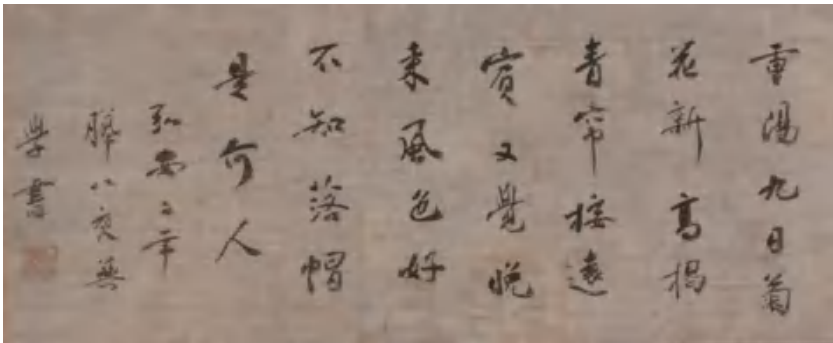 重陽九日菊
花新高揭
青帘接遠
賓又覺晚
来風色好
不知落帽
是何人
弘安二年
臘八夜無
学書